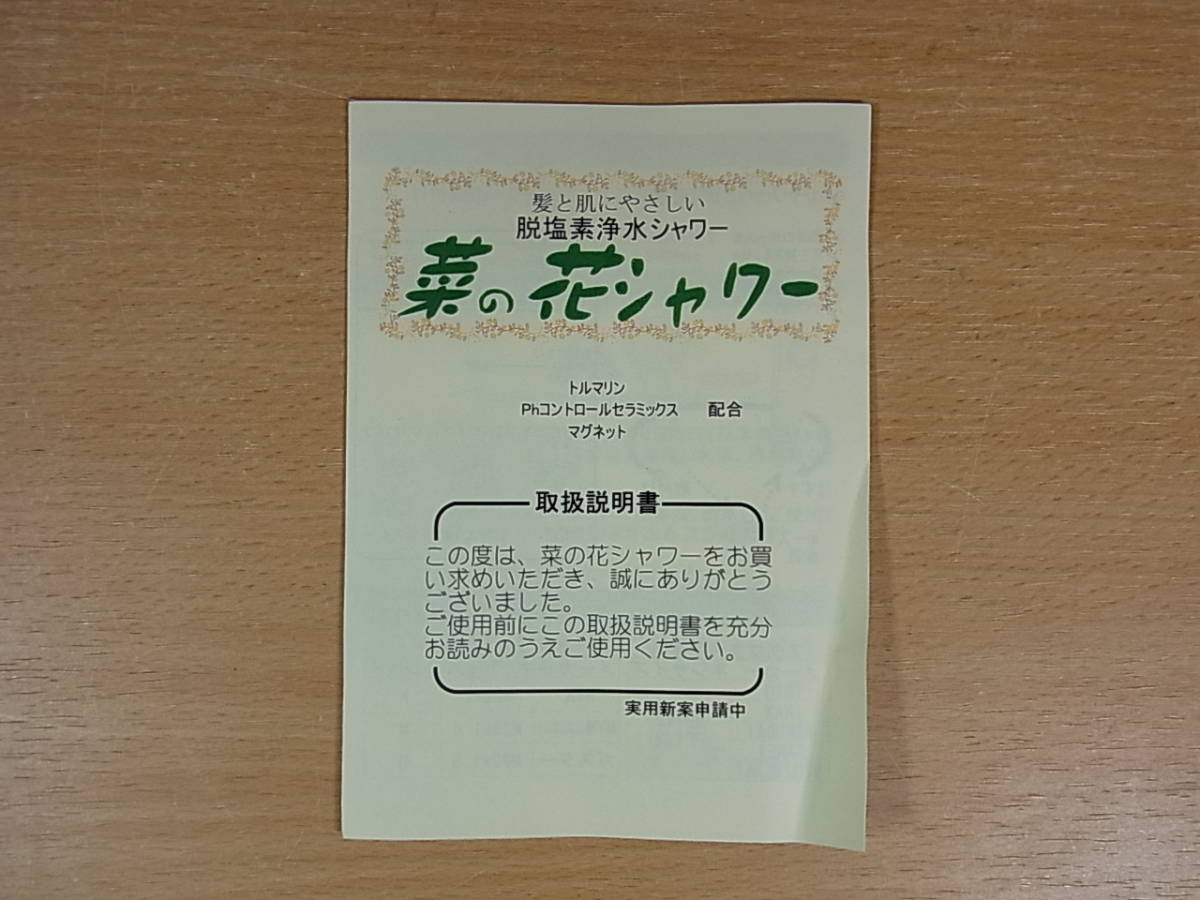 髪と肌にやさしい
脱塩素浄水シャワー
菜の花シャワー
トルマリン
Phコントロールセラミックス 配合
マグネット
取扱説明書
この度は、菜の花シャワーをお買
い求めいただき、誠にありがとう
ございました。
ご使用前にこの取扱説明書を充分
お読みのうえご使用ください。
実用新案申請中